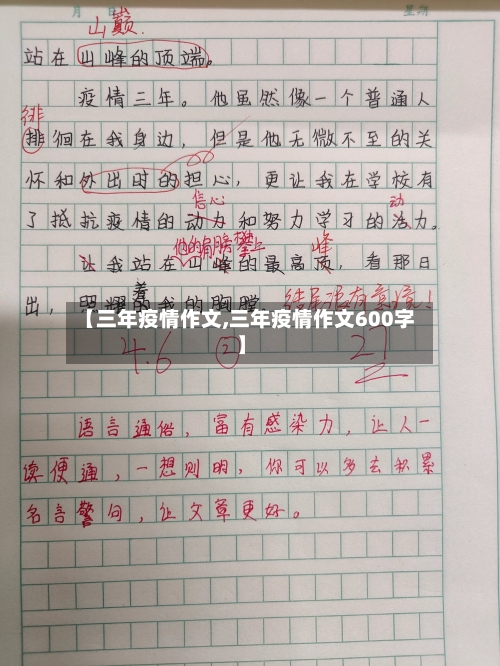 月 日 星期
山巅.
站在山峰的顶端。
疫情三年。他虽然像一个普通人
徘
排徊在我身边，但是他无微不至的关
怀和外出时的担心，更让我在学校有
信心 动
了抵抗疫情的动力和努力学习的活力。
他的肩膀攀上 峰
让我站在山峰的最高顶，看那日
着
出，照耀的我的胸膛 结尾没有意境！
【三年疫情作文,三年疫情作文600字
】
4.6 ② 27
语言通俗，富有感染力，让人一
读便通，一想则明，你可以多去积累
名言警句，让文章更好。